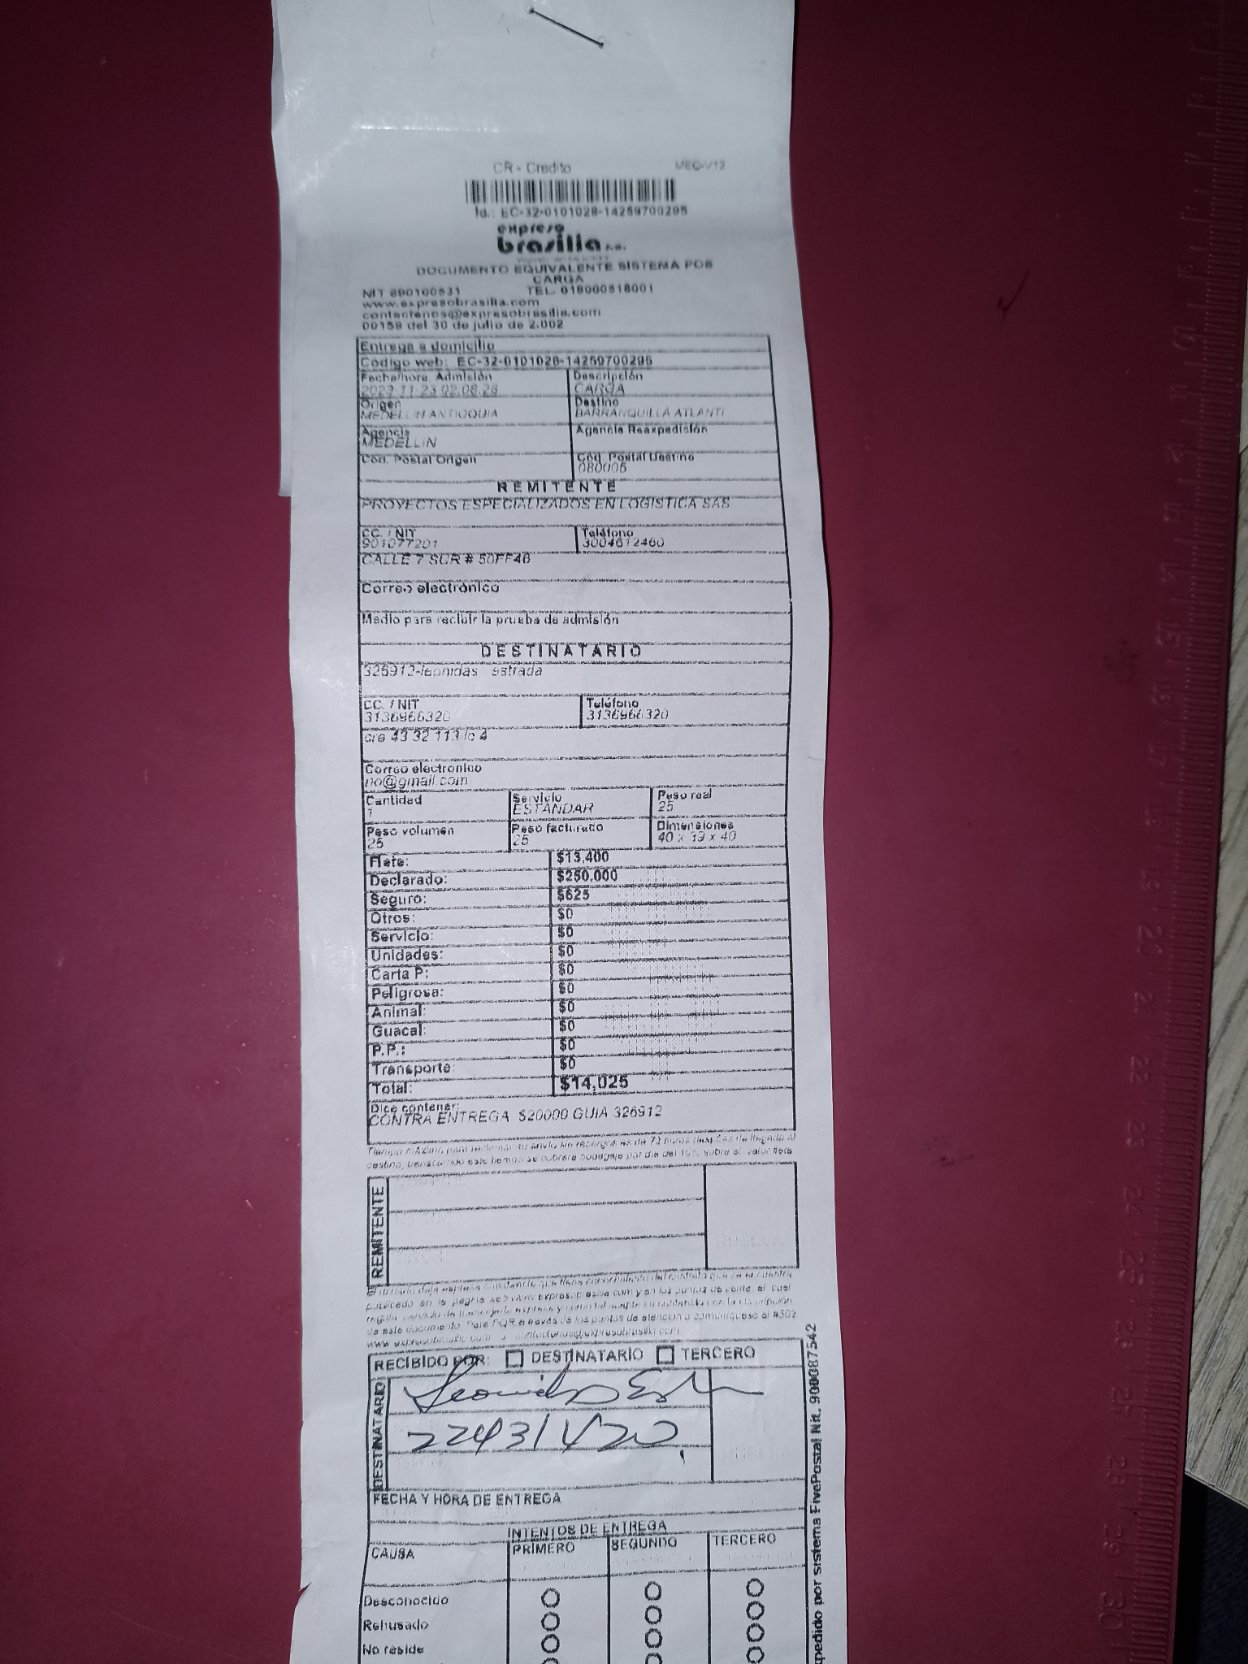 CR - Credito MEC-V12
Id.: EC-32-0101028-14259700295
expreso
brasilia s.a.
DOCUMENTO EQUIVALENTE SISTEMA POS
CARGA
NIT 890100531 TEL. 018000518001
www.expresobrasilia.com
contactenos@expresobrasilia.com
00159 del 30 de julio de 2.002
Entrega a domicilio
Código web: EC-32-0101028-14259700295
Fecha/hora Admisión Descripción
2023-11-23 02:08:26 CARGA
Origen Destino
MEDELLIN ANTIOQUIA BARRANQUILLA ATLANTI
Agencia Agencia Reexpedición
MEDELLIN
Cód. Postal Origen Cód. Postal Destino
080005
REMITENTE
PROYECTOS ESPECIALIZADOS EN LOGISTICA SAS
CC. / NIT Teléfono
901077201 3004612460
CALLE 7 SUR # 50FF46
Correo electrónico
Medio para recibir la prueba de admisión
DESTINATARIO
326912-leonidas estrada
CC. / NIT Teléfono
3136966320 3136966320
cra 43 32 113 lc 4
Correo electrónico
no@gmail.com
Cantidad Servicio Peso real
1 ESTANDAR 25
Peso volumen Peso facturado Dimensiones
25 25 40 x 19 x 40
Flete: $13,400
Declarado: $250,000
Seguro: $625
Otros: $0
Servicio: $0
Unidades: $0
Carta P: $0
Peligrosa: $0
Animal: $0
Guacal: $0
P.P.: $0
Transporte: $0
Total: $14,025
Dice contener:
CONTRA ENTREGA $20000 GUIA 326912
Tiempo máximo para reclamar su envío sin recargos es de 72 horas después de llegada al
destino, transcurrido este tiempo se cobrará bodegaje por día del 10% sobre el valor flete
REMITENTE
RECIBIDO POR: DESTINATARIO TERCERO
DESTINATARIO
22431420
FECHA Y HORA DE ENTREGA
INTENTOS DE ENTREGA
CAUSA PRIMERO SEGUNDO TERCERO
Desconocido
Rehusado
No reside
pedido por sistema FivePostal Nit. 900087542